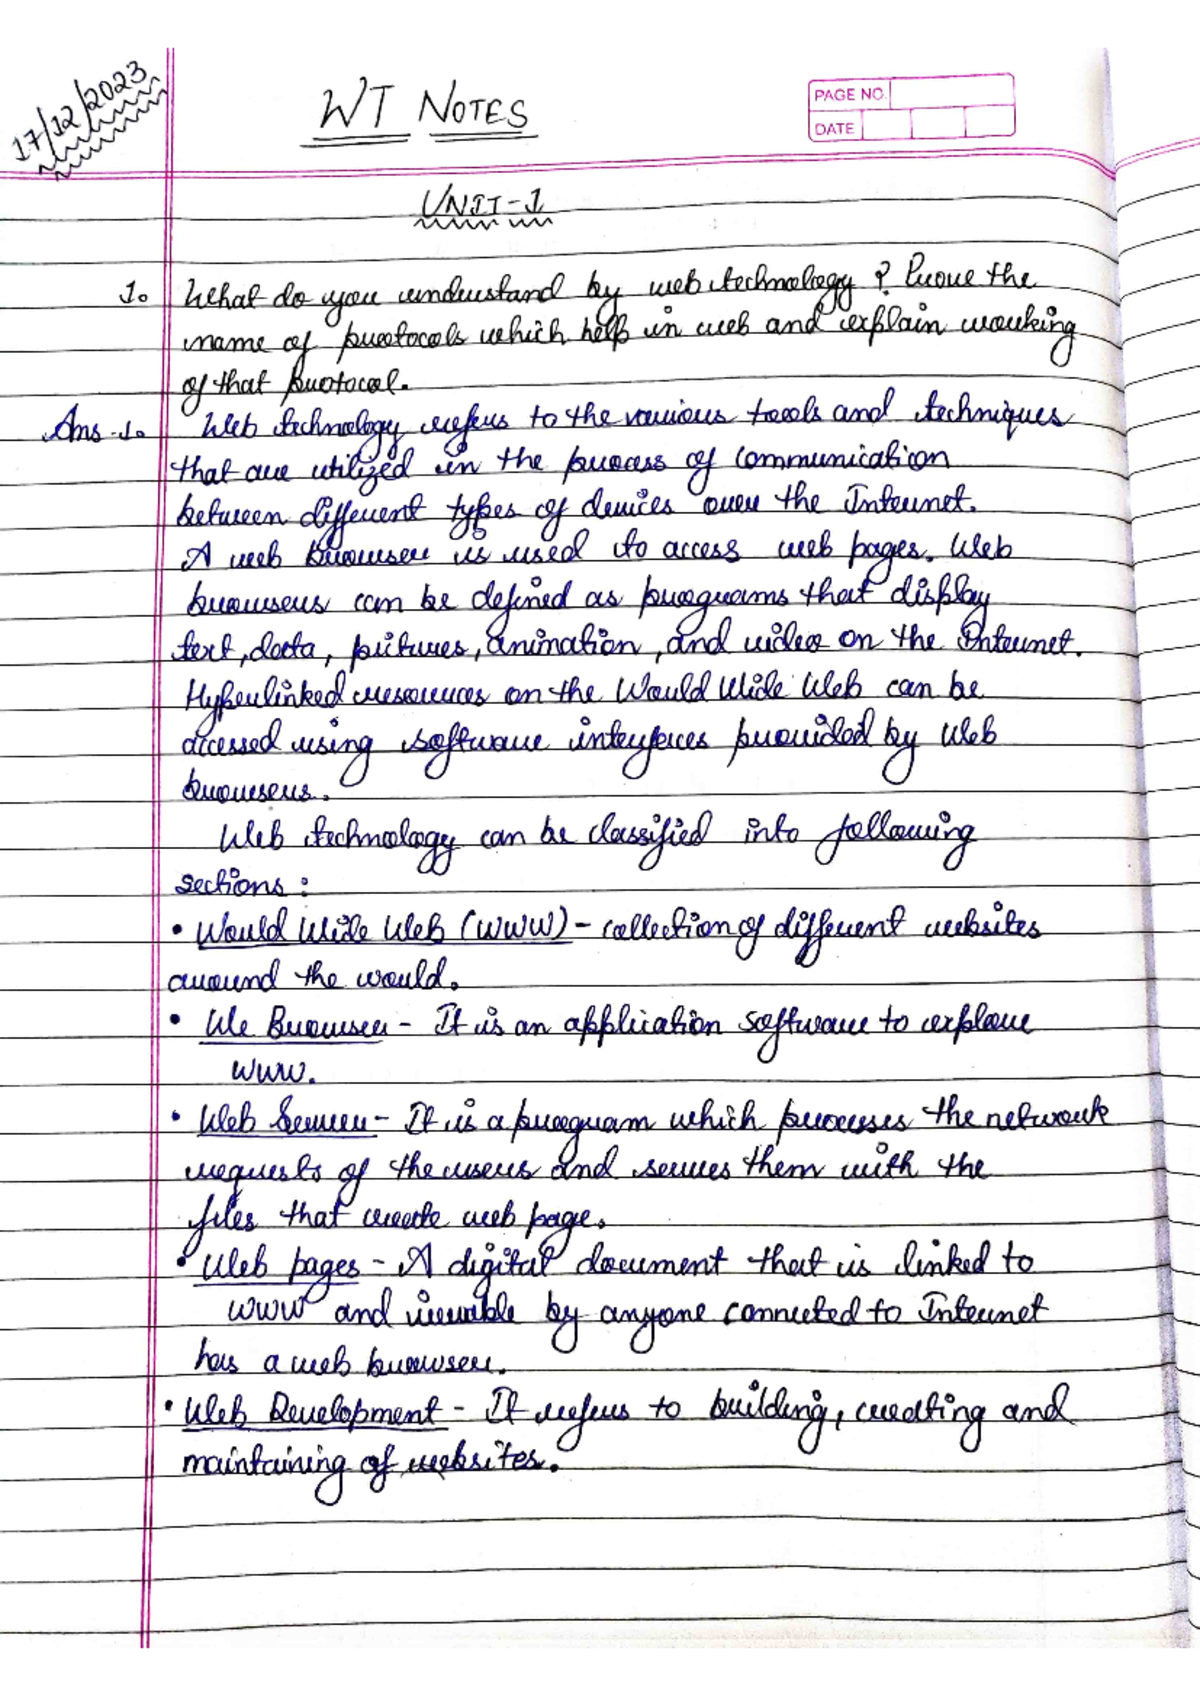 17/12/2023
WT NOTES
PAGE NO.
DATE
UNIT-1
1. What do you understand by web technology? Prove the
name of protocols which help in web and explain working
of that protocol.
Ans-1. Web technology refers to the various tools and techniques
that are utilized in the process of communication
between different types of devices over the Internet.
A web browser is used to access web pages. Web
browsers can be defined as programs that display
text, data, pictures, animation, and video on the Internet.
Hyperlinked resources on the World Wide Web can be
accessed using software interfaces provided by Web
browsers.
Web technology can be classified into following
sections:
• World Wide Web (WWW) - collection of different websites
around the world.
• We Browser - It is an application software to explore
WWW.
• Web Server - It is a program which processes the network
requests of the users and serves them with the
files that create web page.
• Web pages - A digital document that is linked to
WWW and viewable by anyone connected to Internet
has a web browser.
• Web Development - It refers to building, creating and
maintaining of websites.